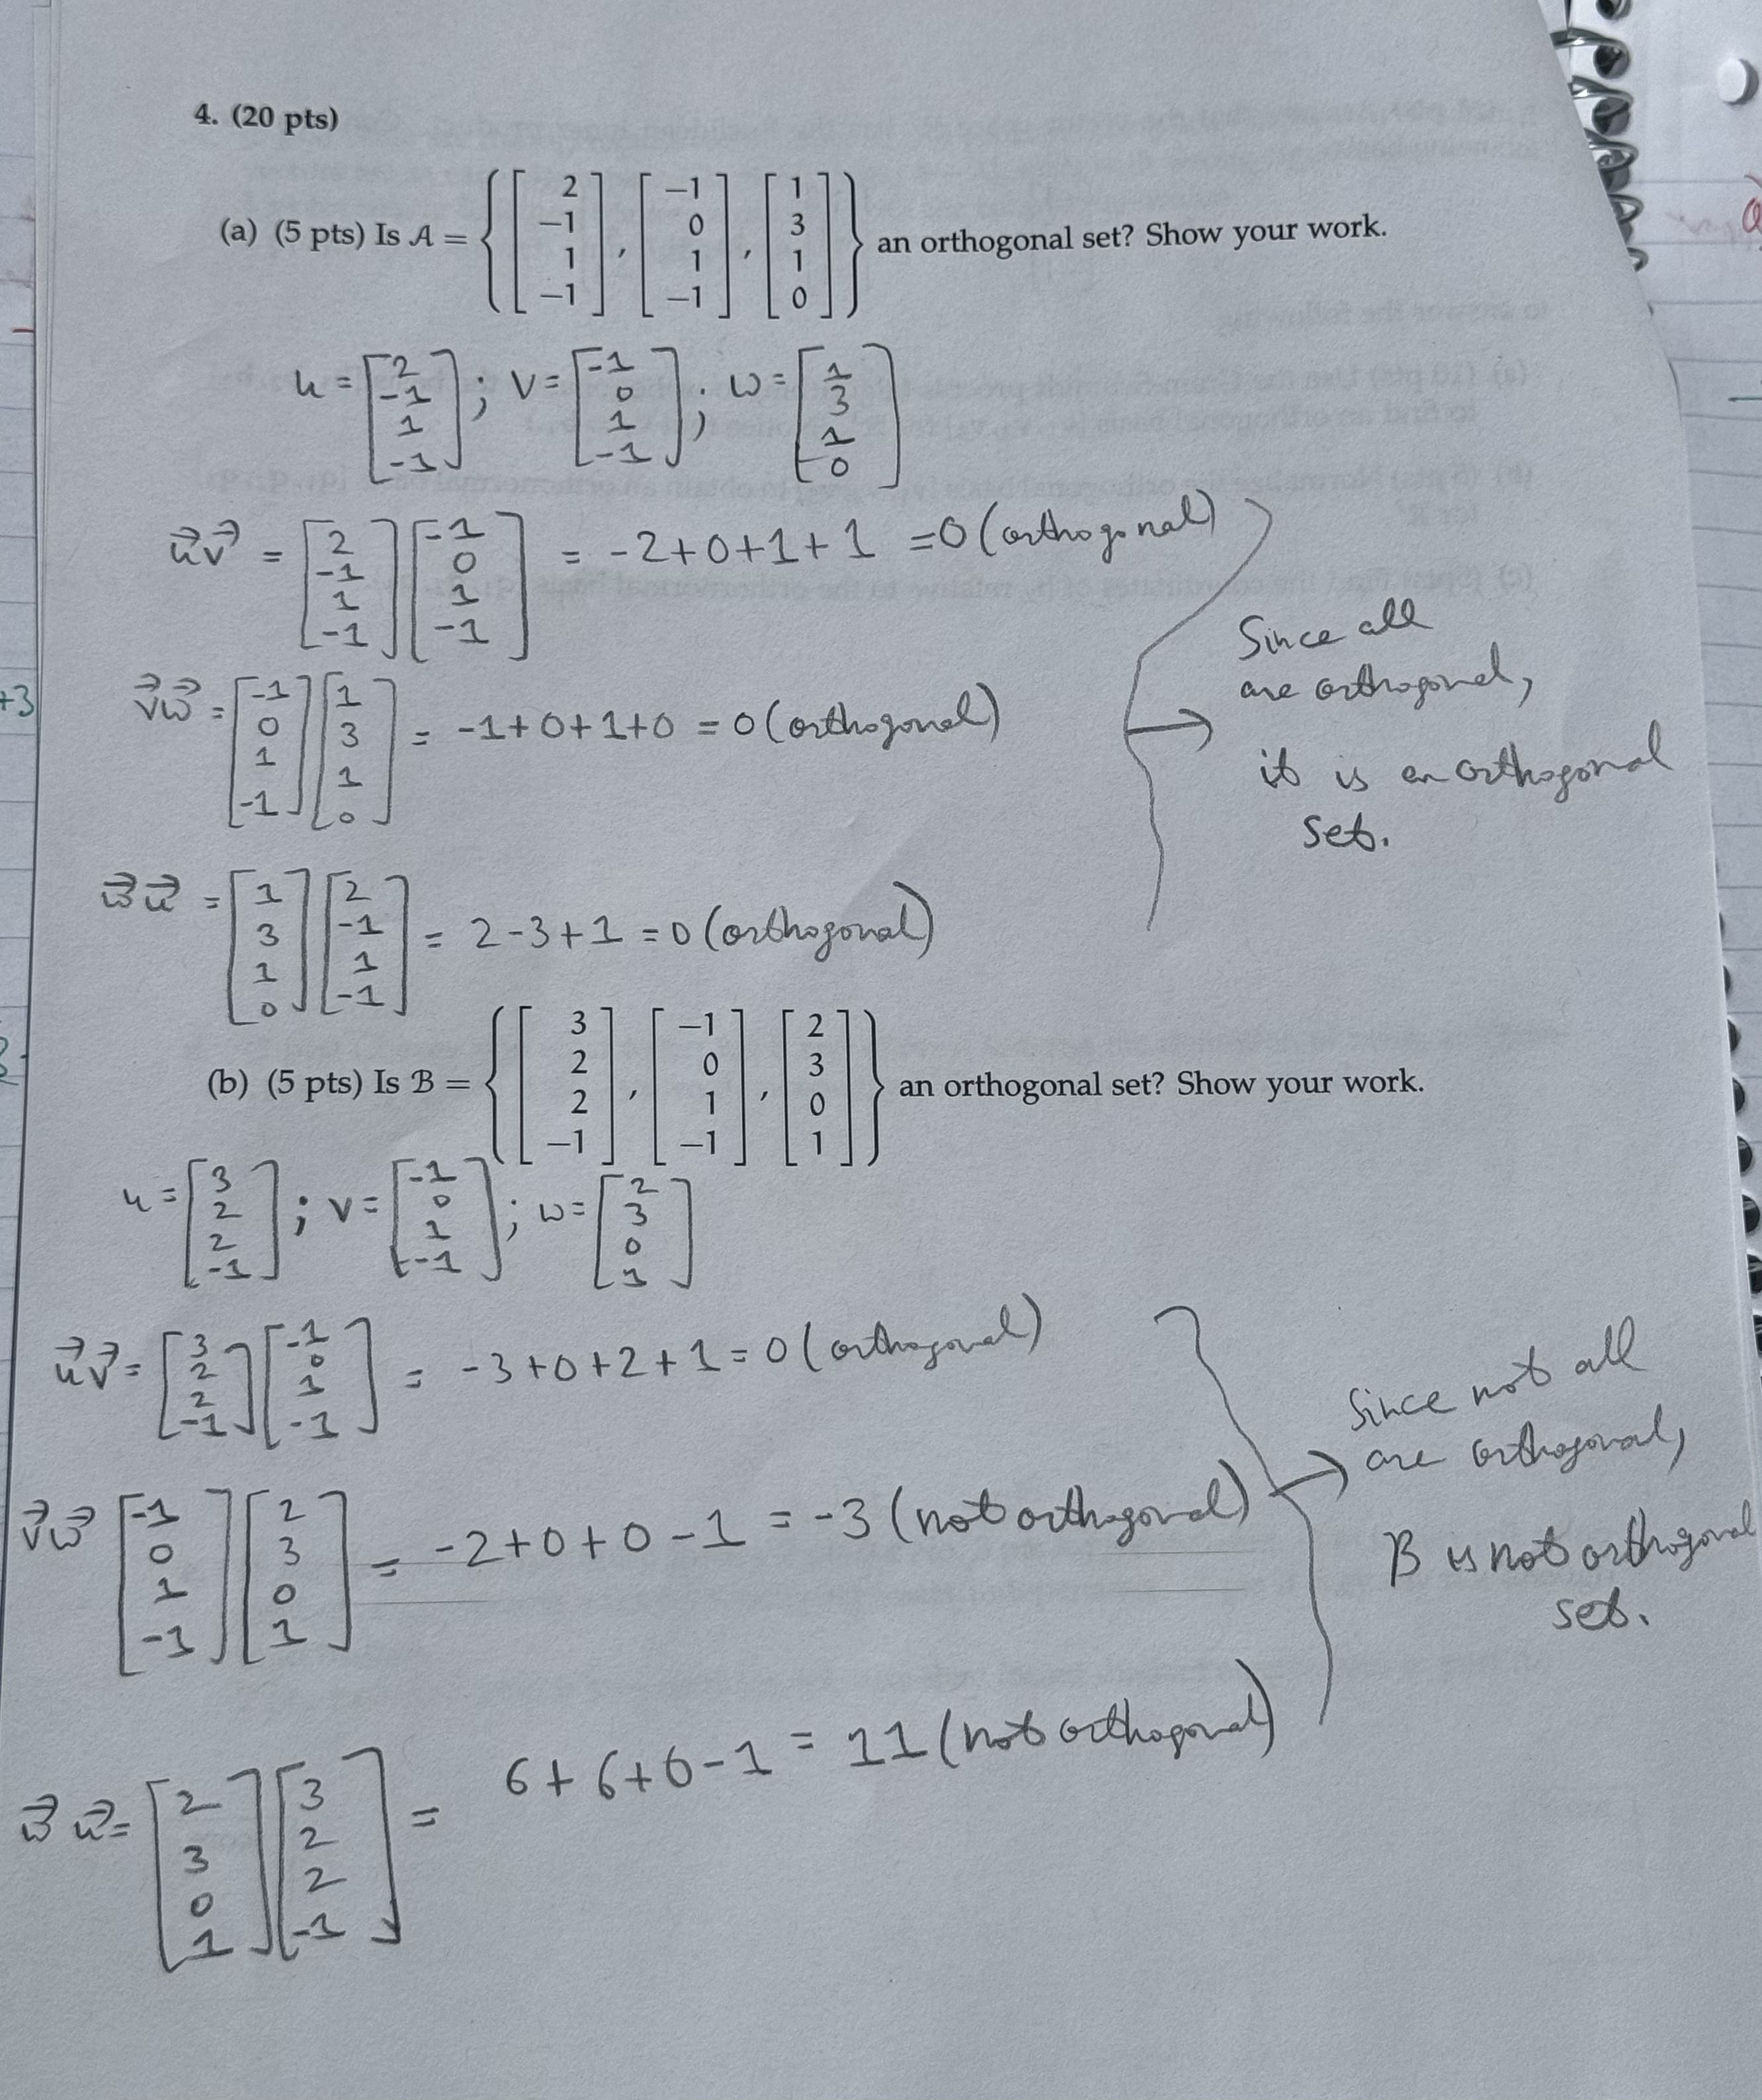 4. (20 pts)
(a) (5 pts) Is A = { [2 -1 1 -1], [-1 0 1 -1], [1 3 1 0] } an orthogonal set? Show your work.
u = [2 -1 1 -1] ; v = [-1 0 1 -1] ; w = [1 3 1 0]
u⃗v⃗ = [2 -1 1 -1] [-1 0 1 -1] = -2+0+1+1 = 0 (orthogonal)
v⃗w⃗ = [-1 0 1 -1] [1 3 1 0] = -1+0+1+0 = 0 (orthogonal)
w⃗u⃗ = [1 3 1 0] [2 -1 1 -1] = 2-3+1 = 0 (orthogonal)
Since all
are orthogonal,
it is an orthogonal
set.
(b) (5 pts) Is B = { [3 2 2 -1], [-1 0 1 -1], [2 3 0 1] } an orthogonal set? Show your work.
u = [3 2 2 -1] ; v = [-1 0 1 -1] ; w = [2 3 0 1]
u⃗v⃗ = [3 2 2 -1] [-1 0 1 -1] = -3+0+2+1 = 0 (orthogonal)
v⃗w⃗ [-1 0 1 -1] [2 3 0 1] = -2+0+0-1 = -3 (not orthogonal)
w⃗u⃗ = [2 3 0 1] [3 2 2 -1] = 6+6+0-1 = 11 (not orthogonal)
Since not all
are orthogonal,
B is not orthogonal
set.
+3